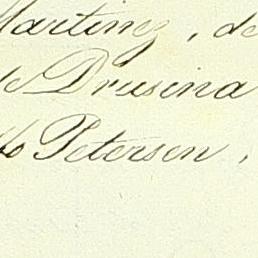 Martinz, de
de Drusina
& Petersen,